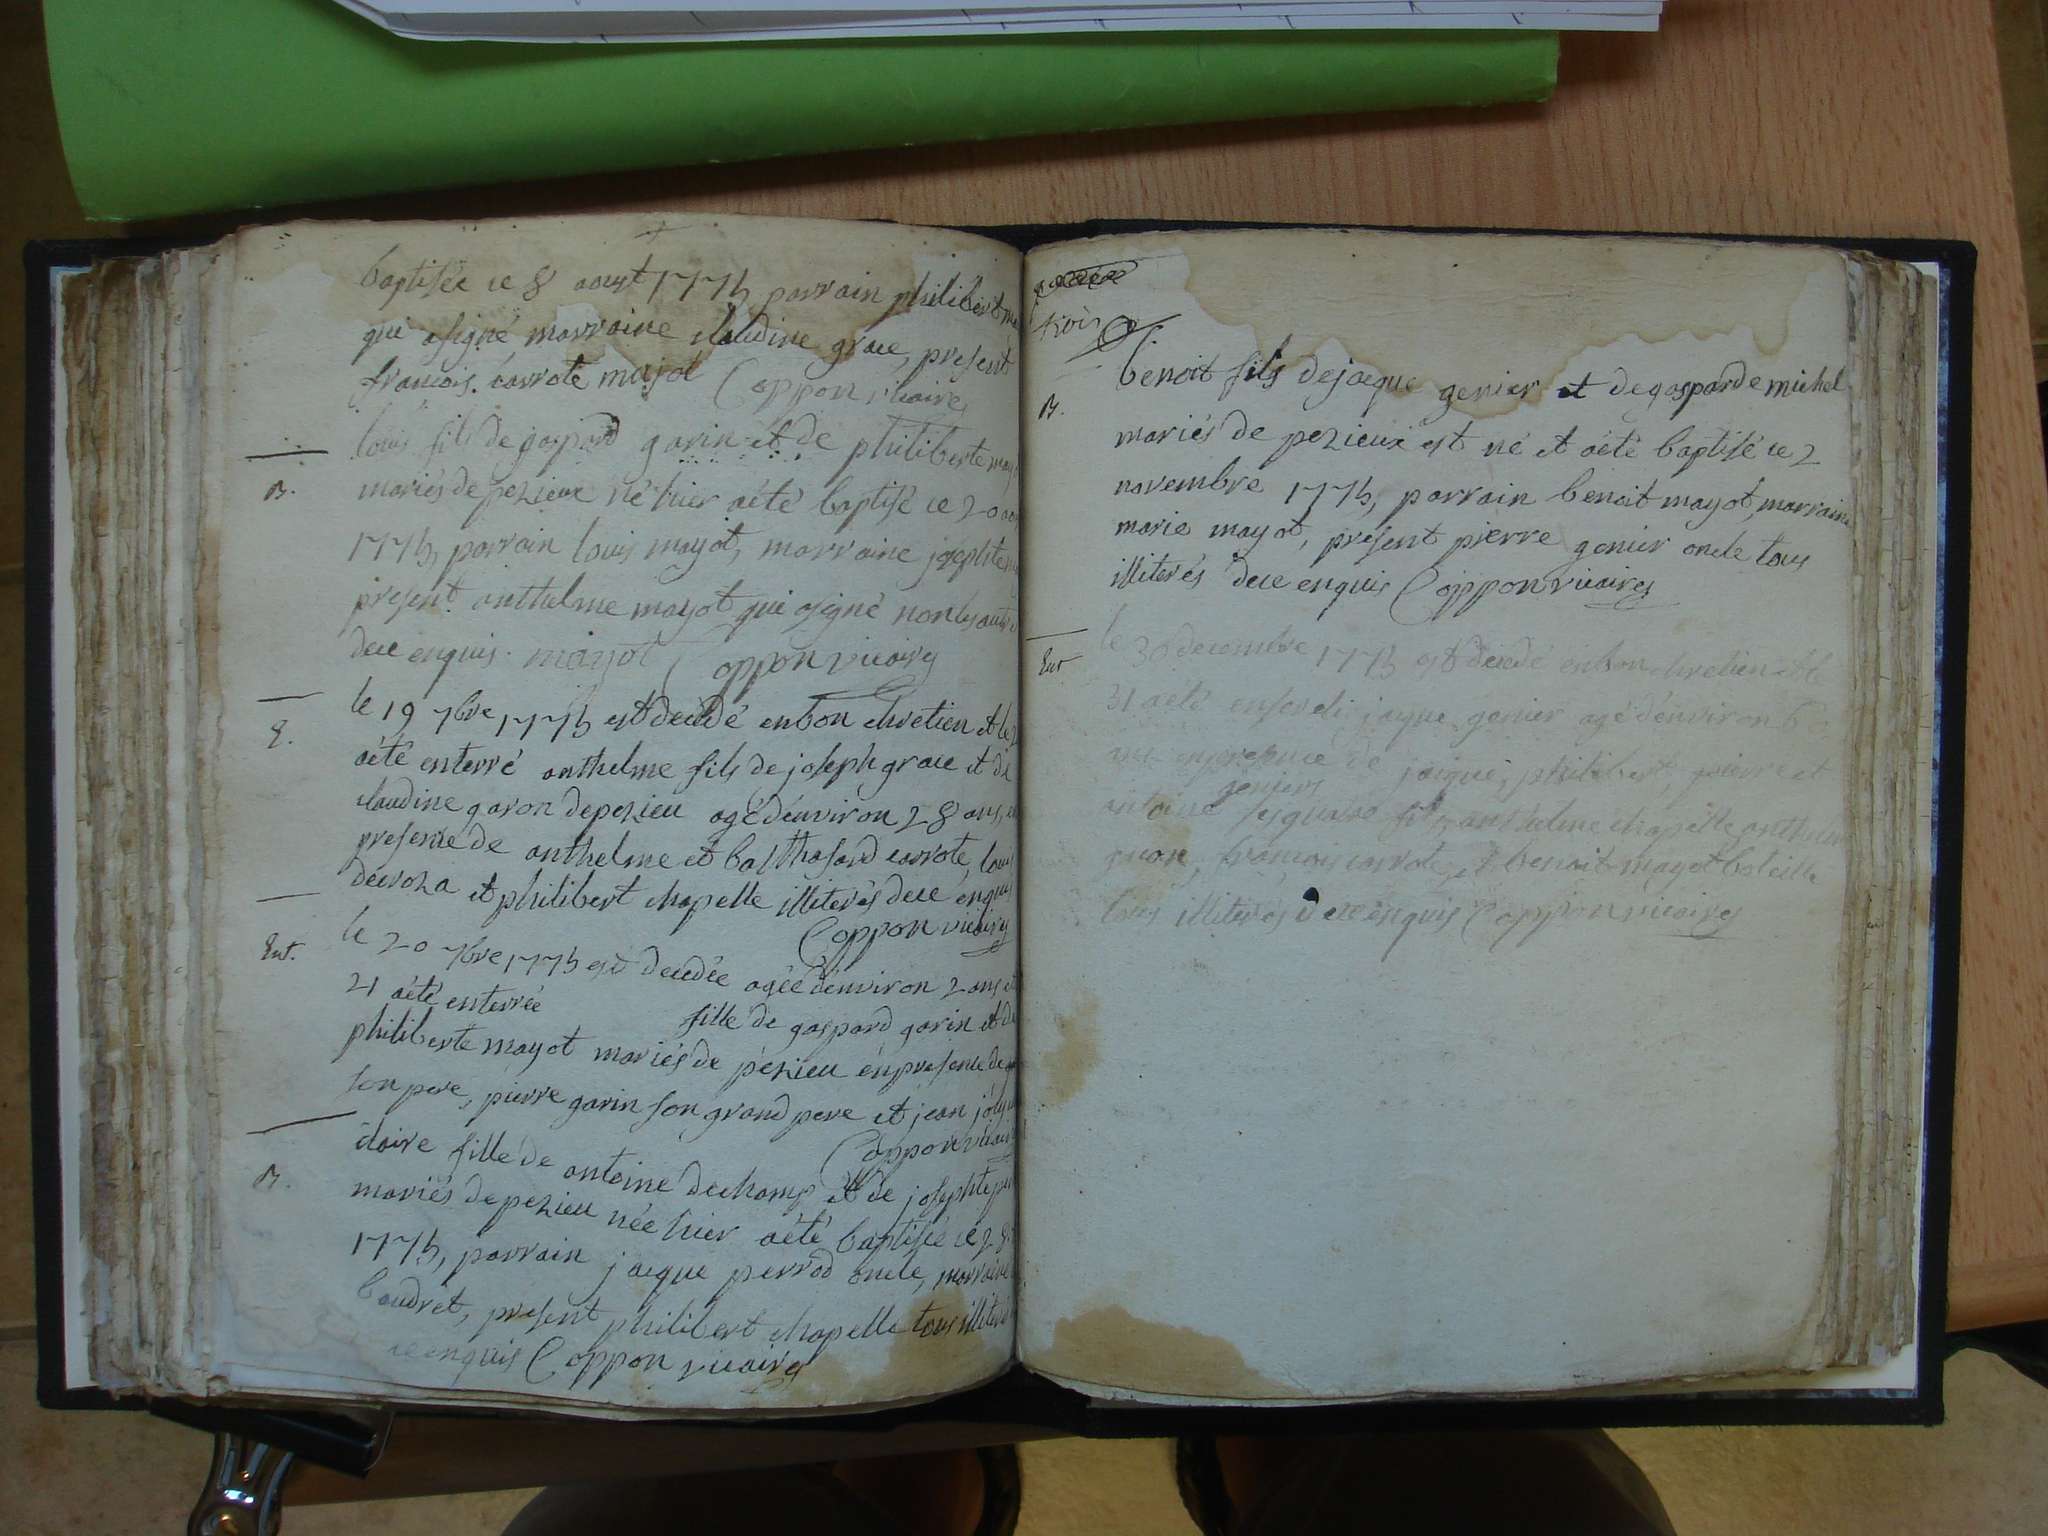 baptisée ce 8 aoust 1775 parrain philibert
qui asigné marraine claudine grace, present
francois carrote majot Coppon vicaire
louis fils de gaspard garin et de philiberte may
B.
mariés de pezieux né hier aété baptisé ce 20
1775, parrain louis mayot, marraine josephte
present anthelme mayot qui asigné non les autre
dece enquis. mayot Coppon vicaire
le 19 7bre 1775 est décédé en bon chretien et le
E.
aété enterré anthelme fils de joseph grace et de
claudine garon depezieu agé d'environ 28 ans,
presence de anthelme et balthasard carrote, louis
decroza et philibert chapelle illiterés dece enquis
Coppon vicaire
Ent.
le 20 7bre 1775 est decedée agée d'environ 2 ans et
21 aété enterrée fille de gaspard garin et de
philiberte mayot mariés de pezieu en presence de
son pere, pierre garin son grand pere et jean
Coppon vicaire
claire fille de antoine dechamp et de josephte
B.
mariés depezieu née hier aété baptisée ce 28
1775, parrain jacque perrod oncle, marraine
baudret, present philibert chapelle tous illiterés
ce enquis Coppon vicaire
trois
benoit fils dejacque genier et degasparde michel
B.
mariés de pezieux est né et aété baptisé ce 2
novembre 1775, parrain benoit mayot, marraine
marie mayot, present pierre genier oncle tous
illiterés dece enquis Coppon vicaire
Ent
le 30 decembre 1775 est décedé enbon chretien et le
31 aété enseveli jacque genier agé d'environ 60
ans enpresence de jacque, philibert, pierre et
geniers
antoine ses quatre fils, anthelme chapelle anthelme
francois carrote, et benoit mayot
tous illiterés dece enquis Coppon vicaire